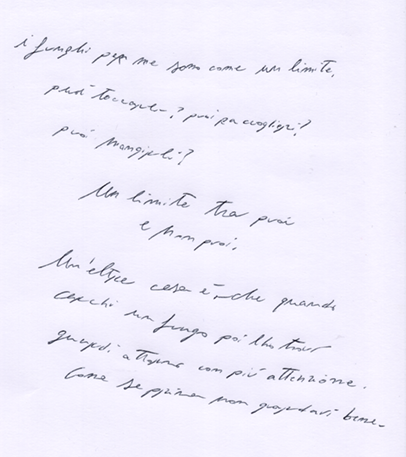 i funghi per me sono come un limite,
puoi toccarli? puoi raccoglierli?
puoi mangiarli?
Un limite tra puoi
e non puoi.
Un'altra cosa è, che quando
cerchi un fungo poi
guardi attorno con più attenzione.
Come se prima non guardavi bene.